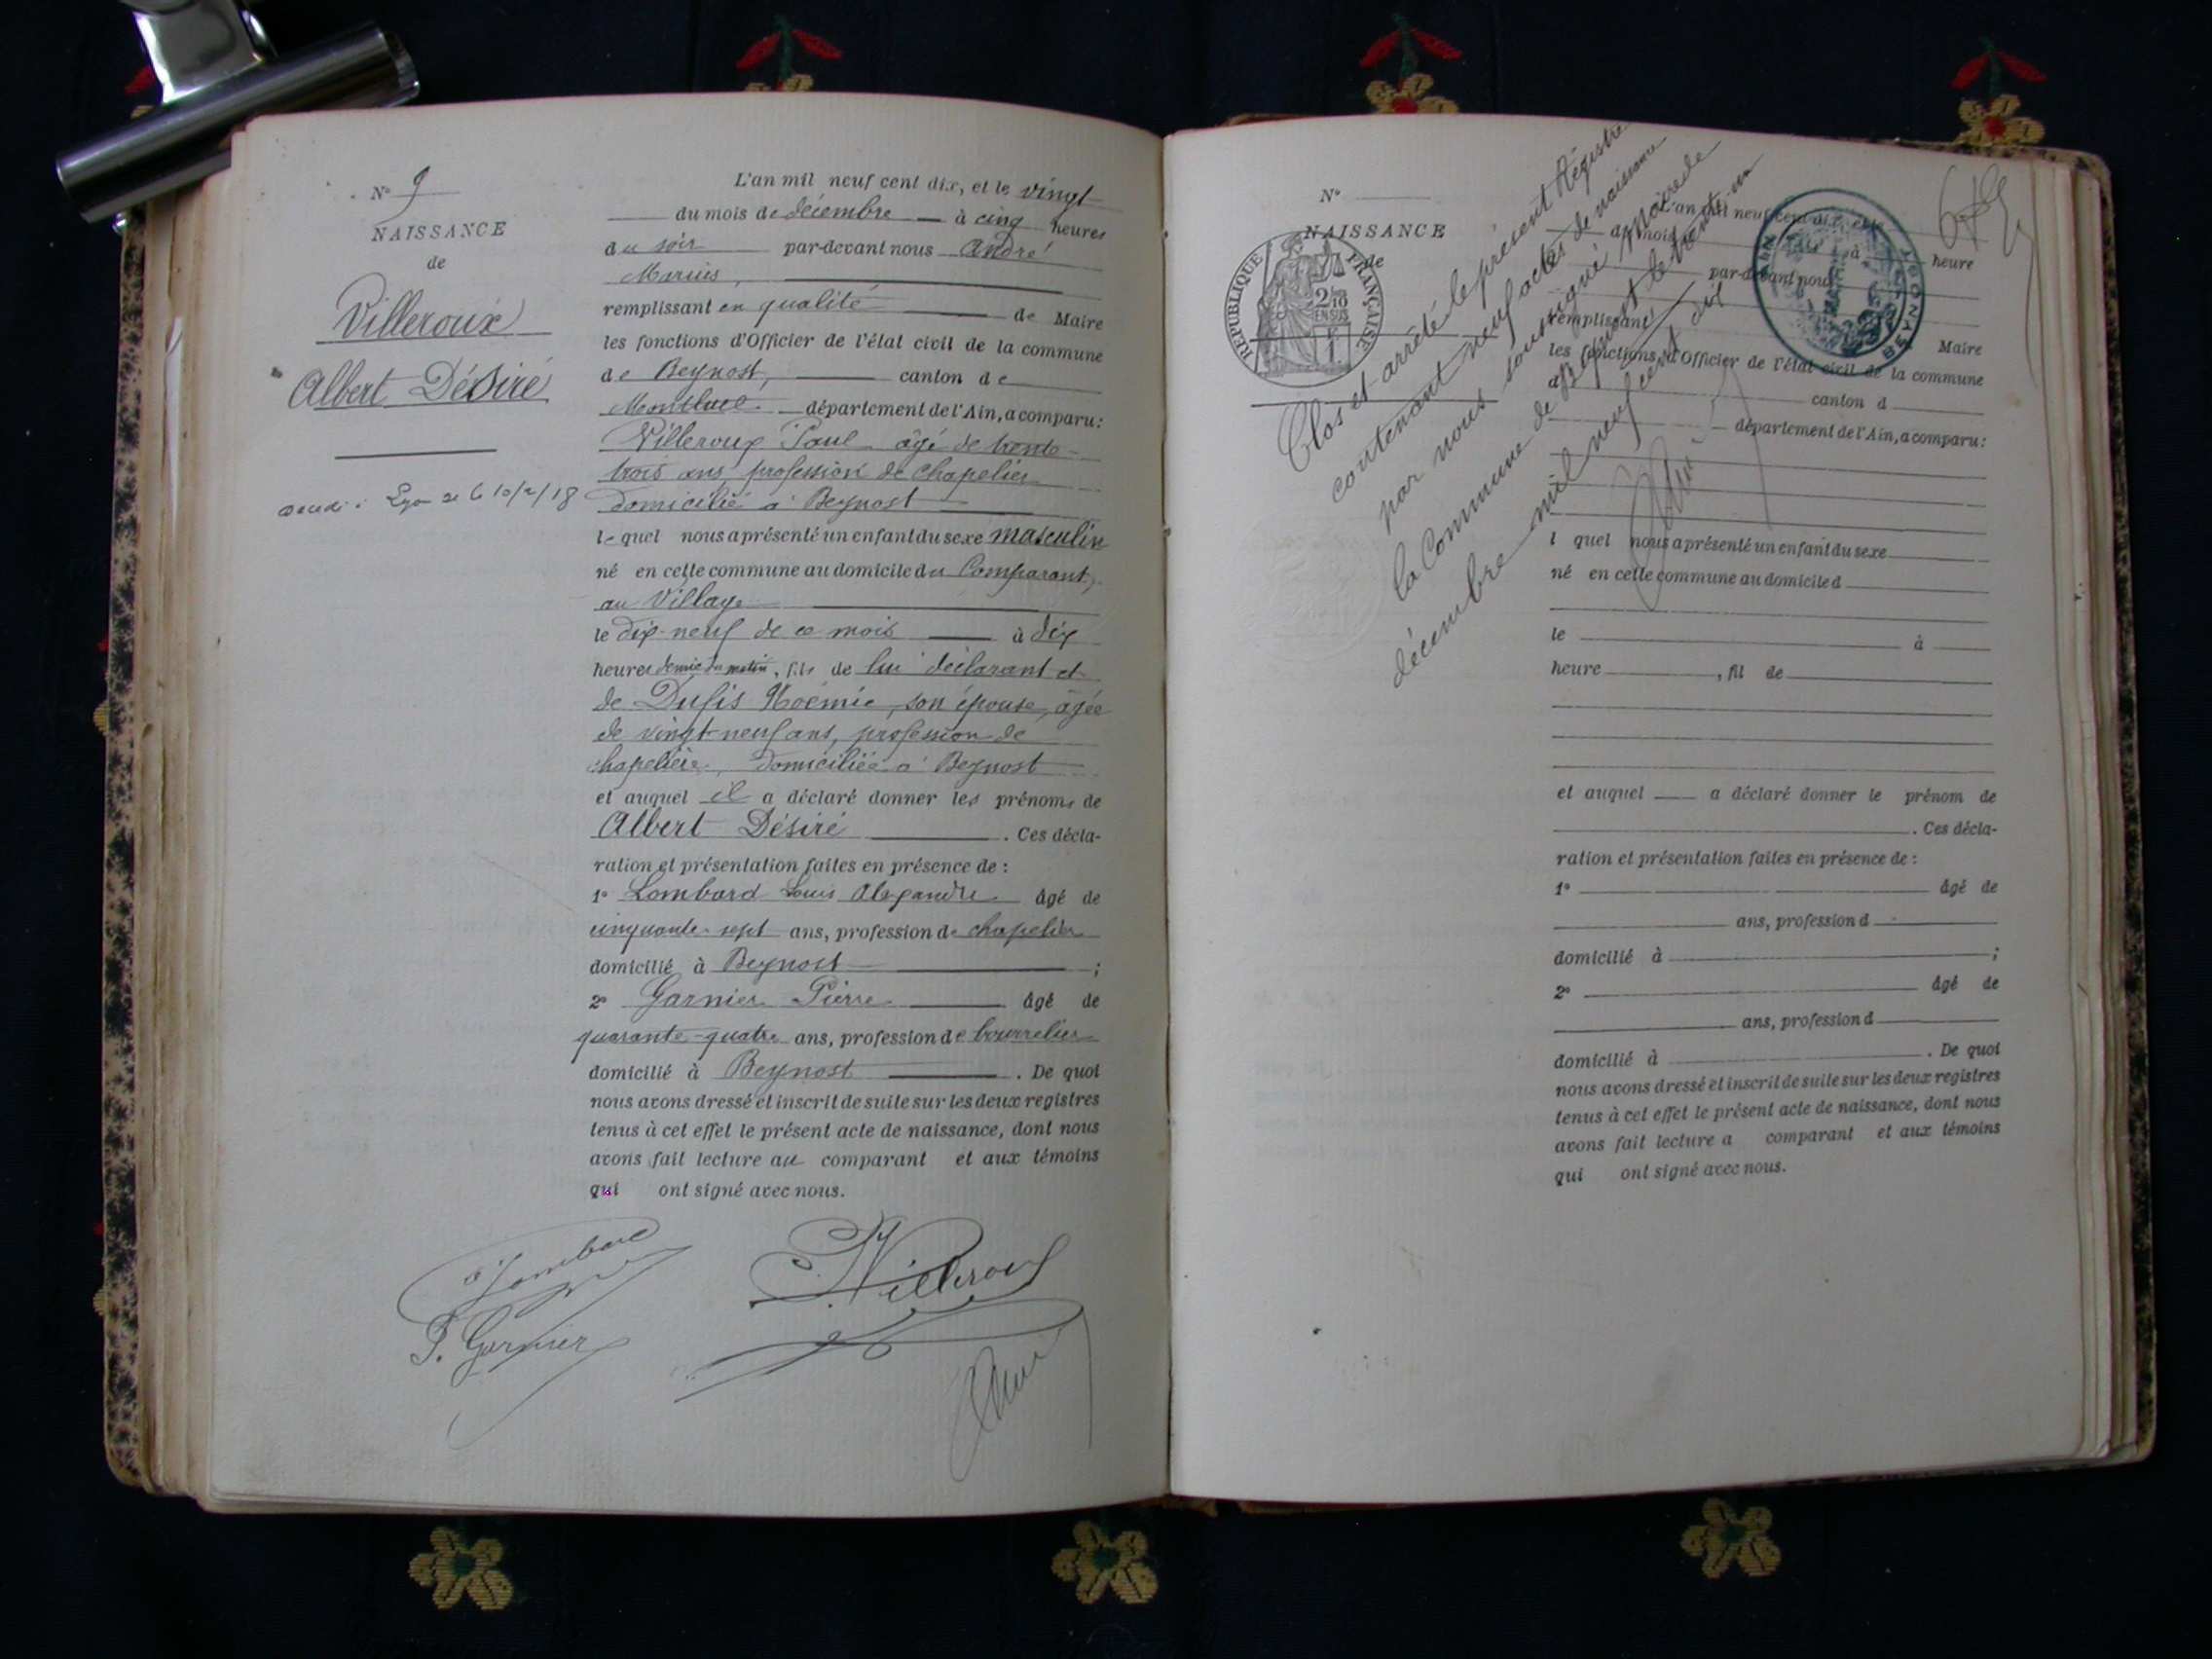 N° 9
NAISSANCE
de
Villeroux
Albert Désiré
Lyon 2e le 10/2/18
L'an mil neuf cent dix, et le vingt
du mois de décembre à cinq heures
du soir par-devant nous André
Marius,
remplissant en qualité de Maire
les fonctions d'Officier de l'état civil de la commune
de Beynost, canton de
Montluel département de l'Ain, a comparu:
Villeroux Paul âgé de trente-
trois ans, profession de chapelier
domicilié à Beynost
lequel nous a présenté un enfant du sexe masculin
né en cette commune au domicile du Comparant,
au Village
le dix-neuf de ce mois à dix
heures demie du matin, fils de lui déclarant et
de Noémie, son épouse, âgée
de vingt-neuf ans, profession de
chapelière, domiciliée à Beynost
et auquel il a déclaré donner les prénoms de
Albert Désiré . Ces décla-
ration et présentation faites en présence de :
1° Lombard Louis Alexandre âgé de
cinquante-sept ans, profession de chapelier
domicilié à Beynost ;
2° Garnier Pierre âgé de
quarante-quatre ans, profession de bourrelier
domicilié à Beynost . De quoi
nous avons dressé et inscrit de suite sur les deux registres
tenus à cet effet le présent acte de naissance, dont nous
avons fait lecture au comparant et aux témoins
qui ont signé avec nous.
Lombard
P. Garnier
Villeroux
N°
NAISSANCE
de
RÉPUBLIQUE FRANÇAISE
2/10 EN SUS
Clos et arrêté le présent Régistre
contenant neuf actes de naissance
par nous soussigné Maire de
la Commune de Beynost le trente-un
décembre mil neuf cent dix
BEYNOST
L'an mil neuf cent dix, et le
du mois à heure
par-devant nous
remplissant
Maire
les fonctions d'Officier de l'état civil de la commune
d canton d
département de l'Ain, a comparu:
l quel nous a présenté un enfant du sexe
né en cette commune au domicile d
le à
heure , fil de
et auquel a déclaré donner le prénom de
. Ces décla-
ration et présentation faites en présence de :
1° âgé de
ans, profession d
domicilié à ;
2° âgé de
ans, profession d
domicilié à . De quoi
nous avons dressé et inscrit de suite sur les deux registres
tenus à cet effet le présent acte de naissance, dont nous
avons fait lecture a comparant et aux témoins
qui ont signé avec nous.